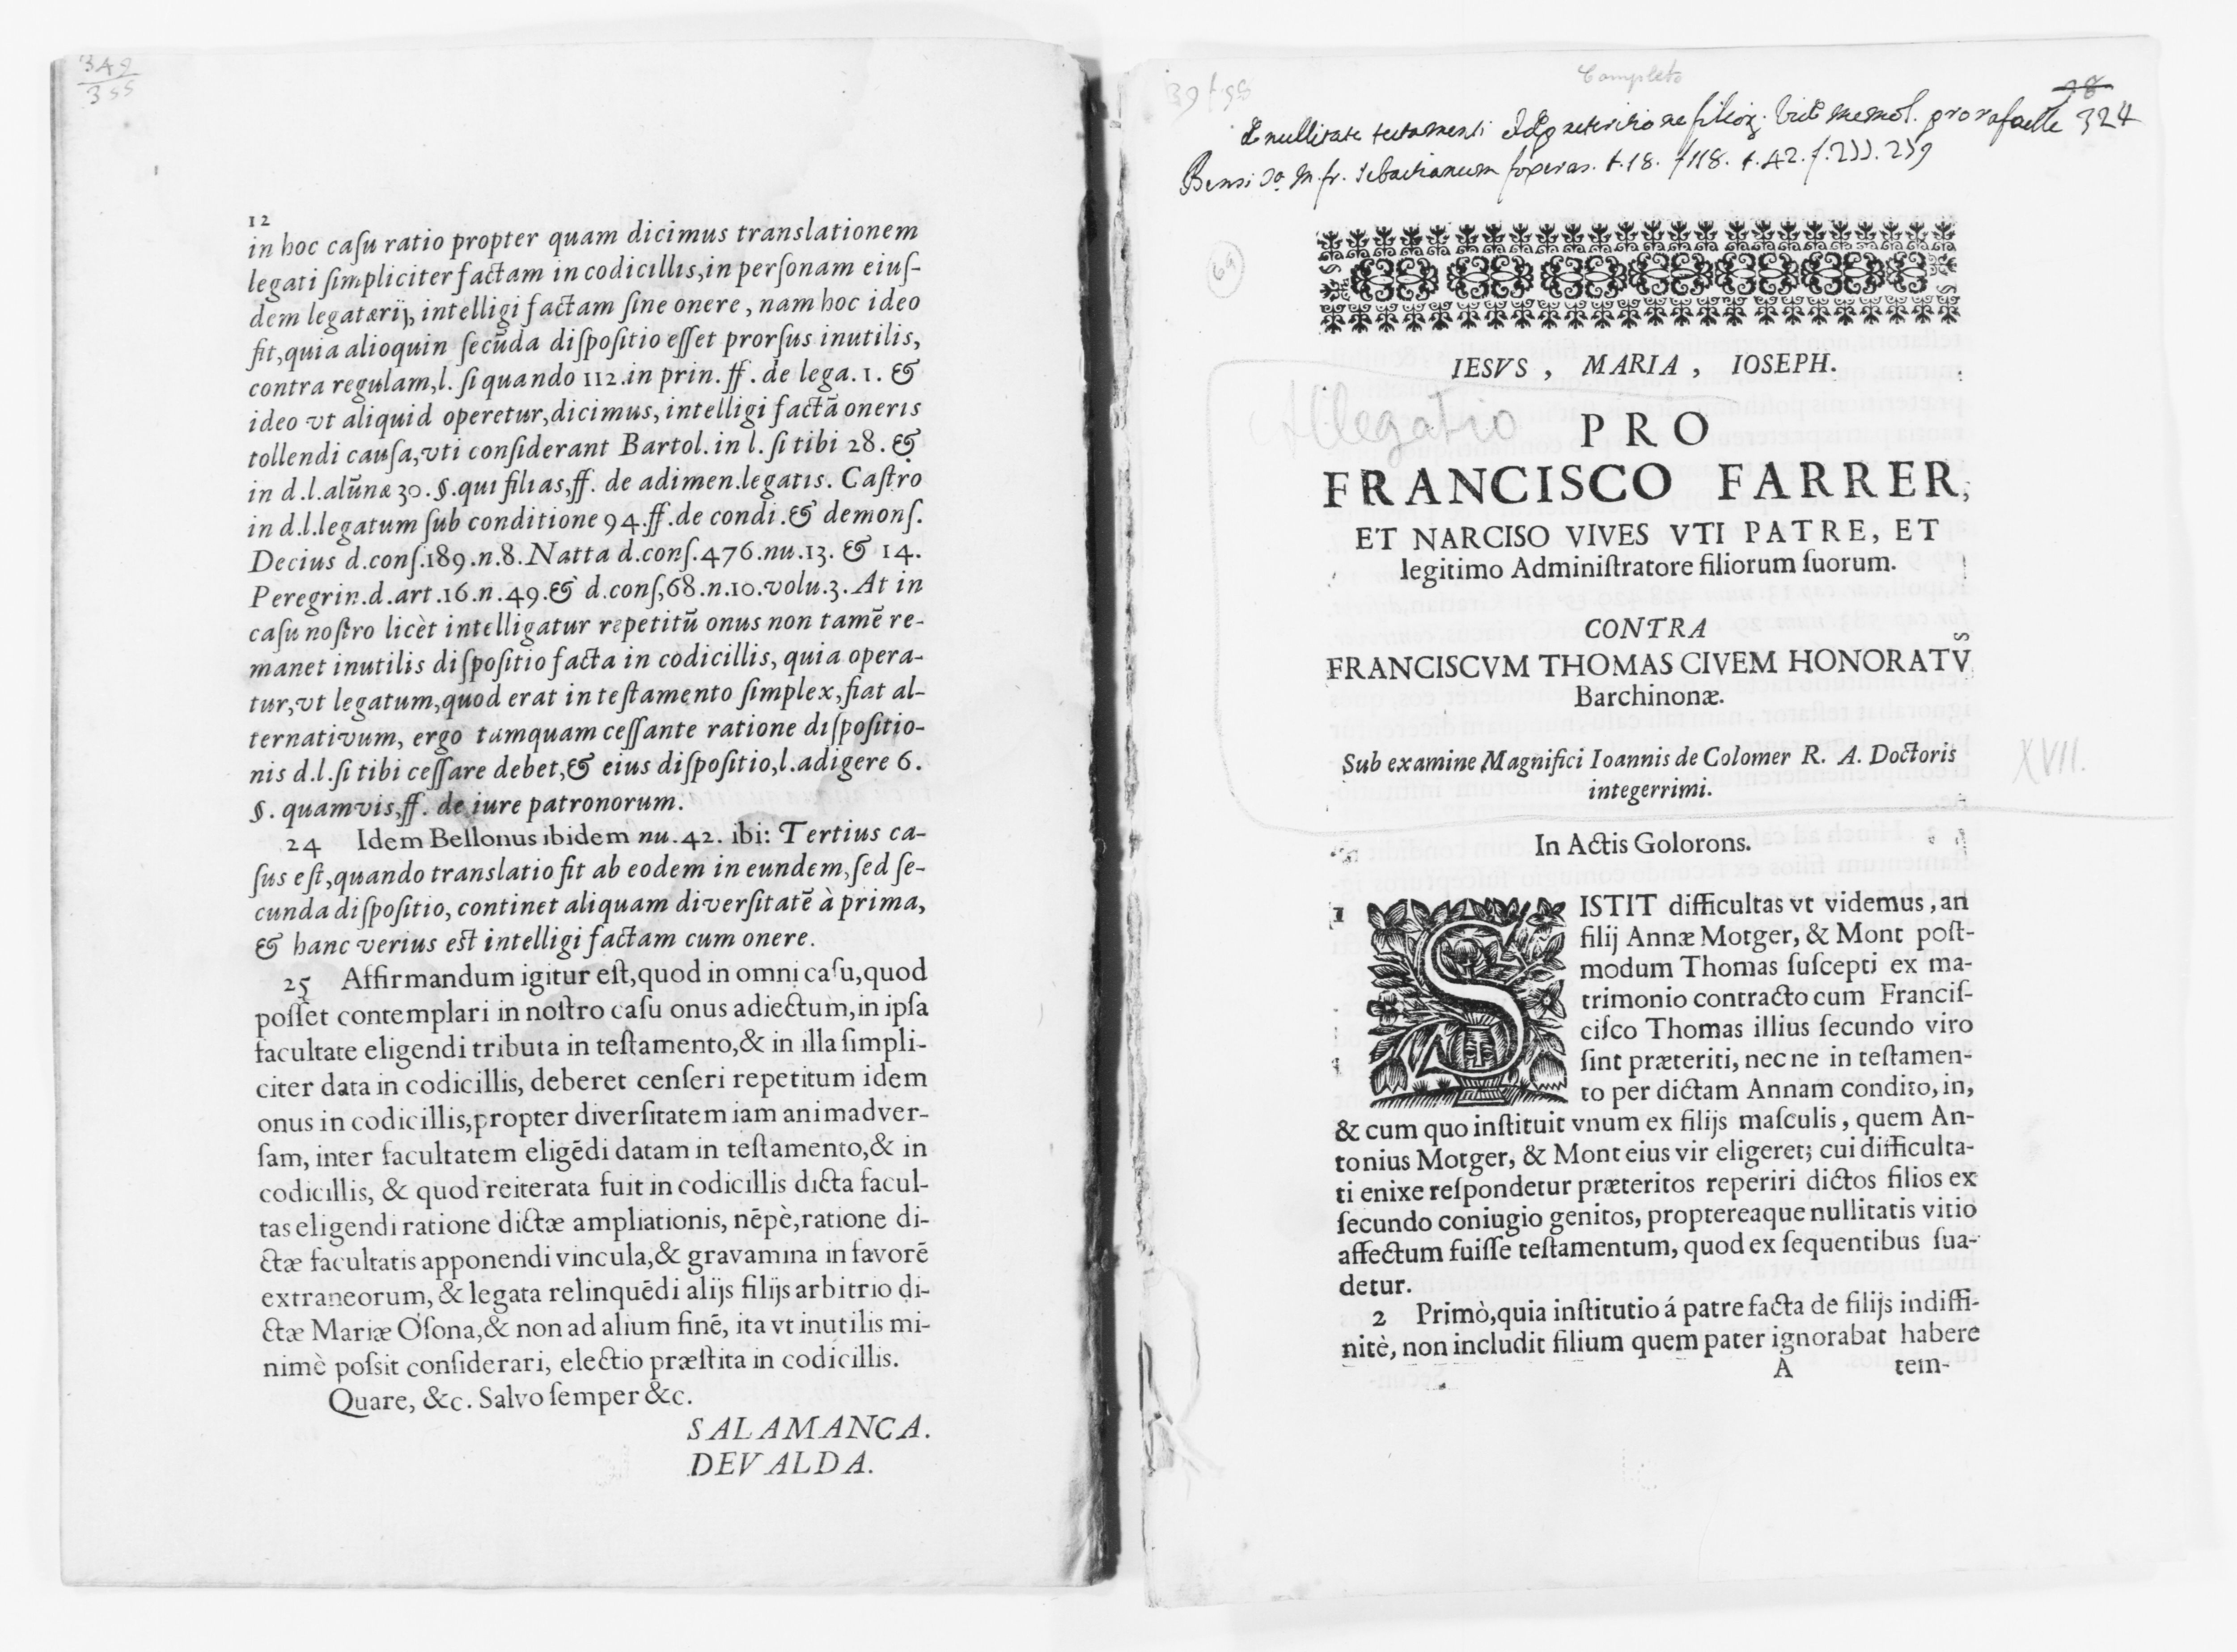 349
355
12
in hoc caſu ratio propter quam dicimus translationem
legati ſimpliciter factam in codicillis, in perſonam eiuſ-
dem legatarij, intelligi factam ſine onere, nam hoc ideo
fit, quia alioquin ſecūda diſpoſitio eſſet prorſus inutilis,
contra regulam, l. ſi quando 112. in prin. ff. de lega. 1. &
ideo vt aliquid operetur, dicimus, intelligi factā oneris
tollendi cauſa, vti conſiderant Bartol. in l. ſi tibi 28. &
in d. l. alūnæ 30. §. qui filias, ff. de adimen. legatis. Caſtro
in d. l. legatum ſub conditione 94. ff. de condi. & demonſ.
Decius d. conſ. 189. n. 8. Natta d. conſ. 476. nu. 13. & 14.
Peregrin. d. art. 16. n. 49. & d. conſ, 68. n. 10. volu. 3. At in
caſu noſtro licèt intelligatur repetitū onus non tamē re-
manet inutilis diſpoſitio facta in codicillis, quia opera-
tur, vt legatum, quod erat in teſtamento ſimplex, fiat al-
ternativum, ergo tamquam ceſſante ratione diſpoſitio-
nis d. l. ſi tibi ceſſare debet, & eius diſpoſitio, l. adigere 6.
§. quamvis, ff. de iure patronorum.
24 Idem Bellonus ibidem nu. 42. ibi: Tertius ca-
ſus eſt, quando translatio fit ab eodem in eundem, ſed ſe-
cunda diſpoſitio, continet aliquam diverſitatē à prima,
& hanc verius eſt intelligi factam cum onere.
25 Affirmandum igitur eſt, quod in omni caſu, quod
poſſet contemplari in noſtro caſu onus adiectum, in ipſa
facultate eligendi tributa in teſtamento, & in illa ſimpli-
citer data in codicillis, deberet cenſeri repetitum idem
onus in codicillis, propter diverſitatem iam animadver-
ſam, inter facultatem eligēdi datam in teſtamento, & in
codicillis, & quod reiterata fuit in codicillis dicta facul-
tas eligendi ratione dictæ ampliationis, nēpè, ratione di-
ctæ facultatis apponendi vincula, & gravamina in favorē
extraneorum, & legata relinquēdi alijs filijs arbitrio di-
ctæ Mariæ Oſona, & non ad alium finē, ita vt inutilis mi-
nimè poſsit conſiderari, electio præſtita in codicillis.
Quare, &c. Salvo ſemper &c.
SALAMANCA.
DEVALDA.
Completo
98
nullitate testamenti filior. memol. pro rafaelle 324
t.18. f118. t.42. f.
69
IESVS, MARIA, IOSEPH.
Allegatio
PRO
FRANCISCO FARRER,
ET NARCISO VIVES VTI PATRE, ET
legitimo Adminiſtratore filiorum ſuorum.
CONTRA
FRANCISCVM THOMAS CIVEM HONORATVS
Barchinonæ.
Sub examine Magnifici Ioannis de Colomer R. A. Doctoris
integerrimi.
XVII.
In Actis Golorons.
1 SISTIT difficultas vt videmus, an
filij Annæ Motger, & Mont poſt-
modum Thomas ſuſcepti ex ma-
trimonio contracto cum Franciſ-
ciſco Thomas illius ſecundo viro
ſint præteriti, nec ne in teſtamen-
to per dictam Annam condito, in,
& cum quo inſtituit vnum ex filijs maſculis, quem An-
tonius Motger, & Mont eius vir eligeret; cui difficulta-
ti enixe reſpondetur præteritos reperiri dictos filios ex
ſecundo coniugio genitos, proptereaque nullitatis vitio
affectum fuiſſe teſtamentum, quod ex ſequentibus ſua-
detur.
2 Primò, quia inſtitutio á patre facta de filijs indiffi-
nitè, non includit filium quem pater ignorabat habere
A tem-